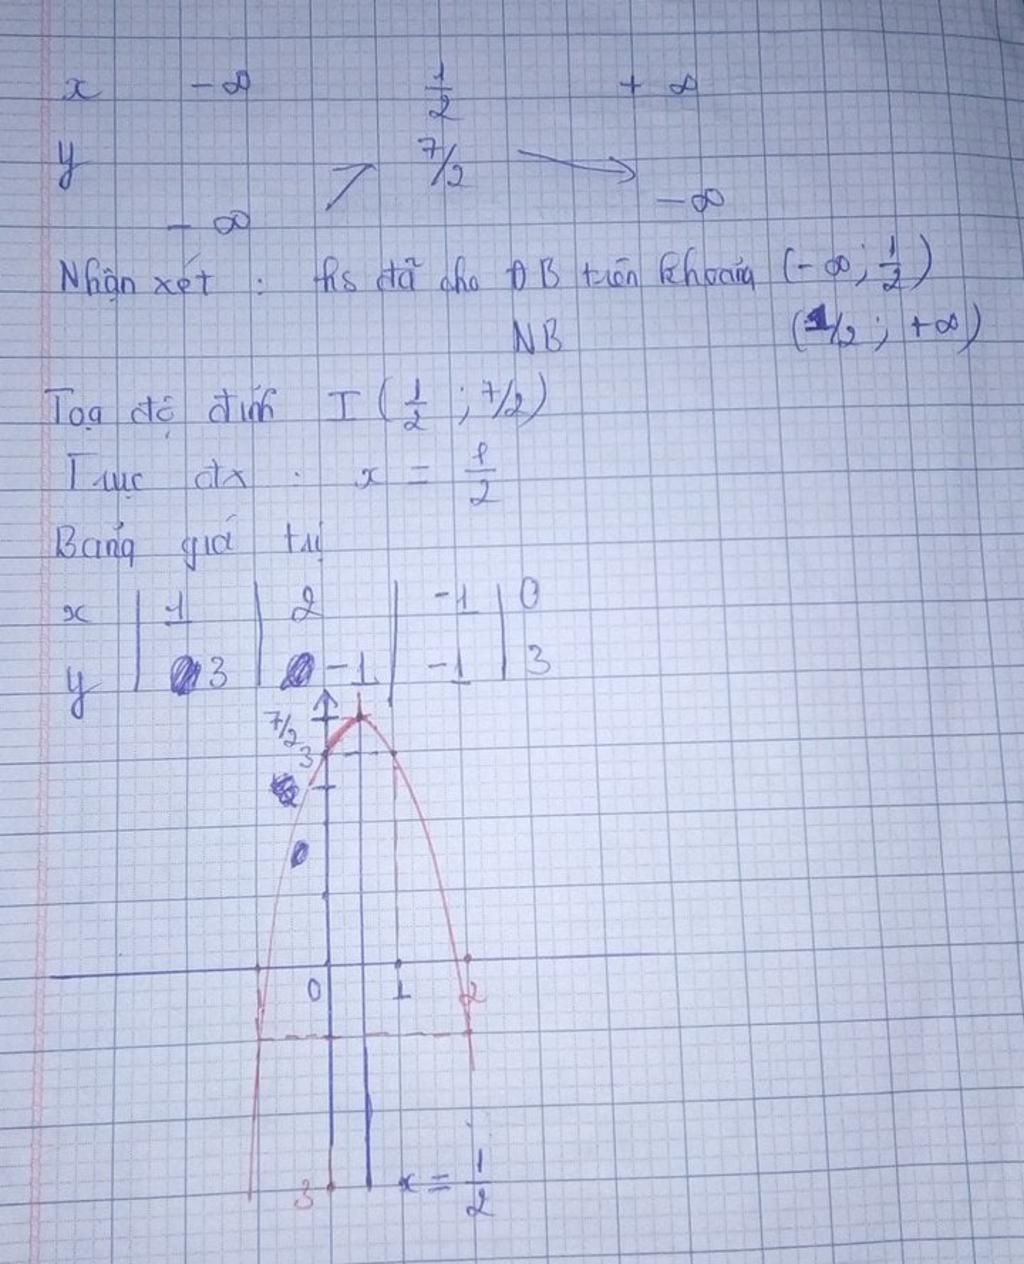 x -∞ 1/2 +∞
y 7/2
-∞ -∞
Nhận xét : hs đã cho ĐB trên khoảng (-∞; 1/2)
NB (1/2; +∞)
Toạ độ đỉnh I (1/2; 7/2)
Trục đx : x = 1/2
Bảng giá trị
x | 1 | 2 | -1 | 0
y | 3 | -1 | -1 | 3
7/2
3
0 1 2
3 x = 1/2